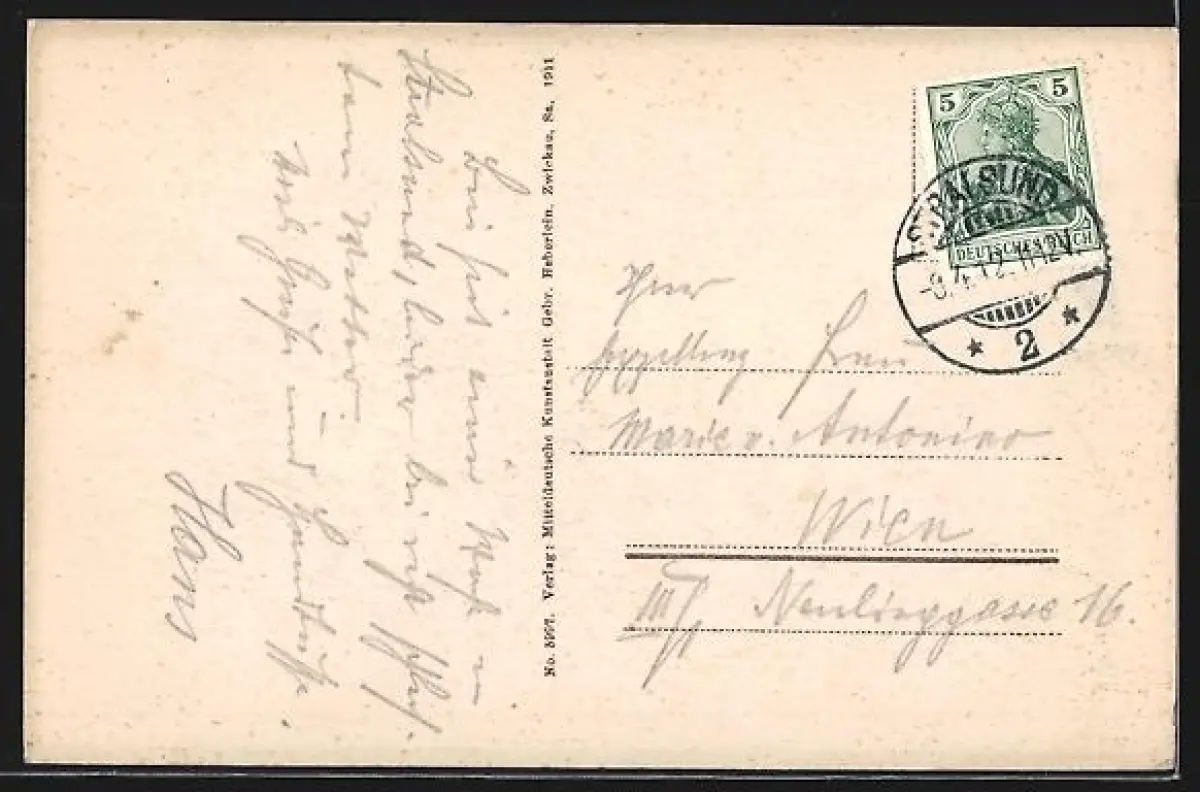 Bin seit einer Woche in
Stralsund, leider bei recht schlech-
tem Wetter.
Viele Grüße und Handküsse.
Hans
No. 5997. Verlag: Mitteldeutsche Kunstanstalt Gebr. Heberlein, Zwickau, Sa. 1911
5 5
DEUTSCHES REICH
STRALSUND
4.12. 11-12V.
* 2 *
Frau
Marie v. Antonino
Wien
III/ Neulinggasse 16.